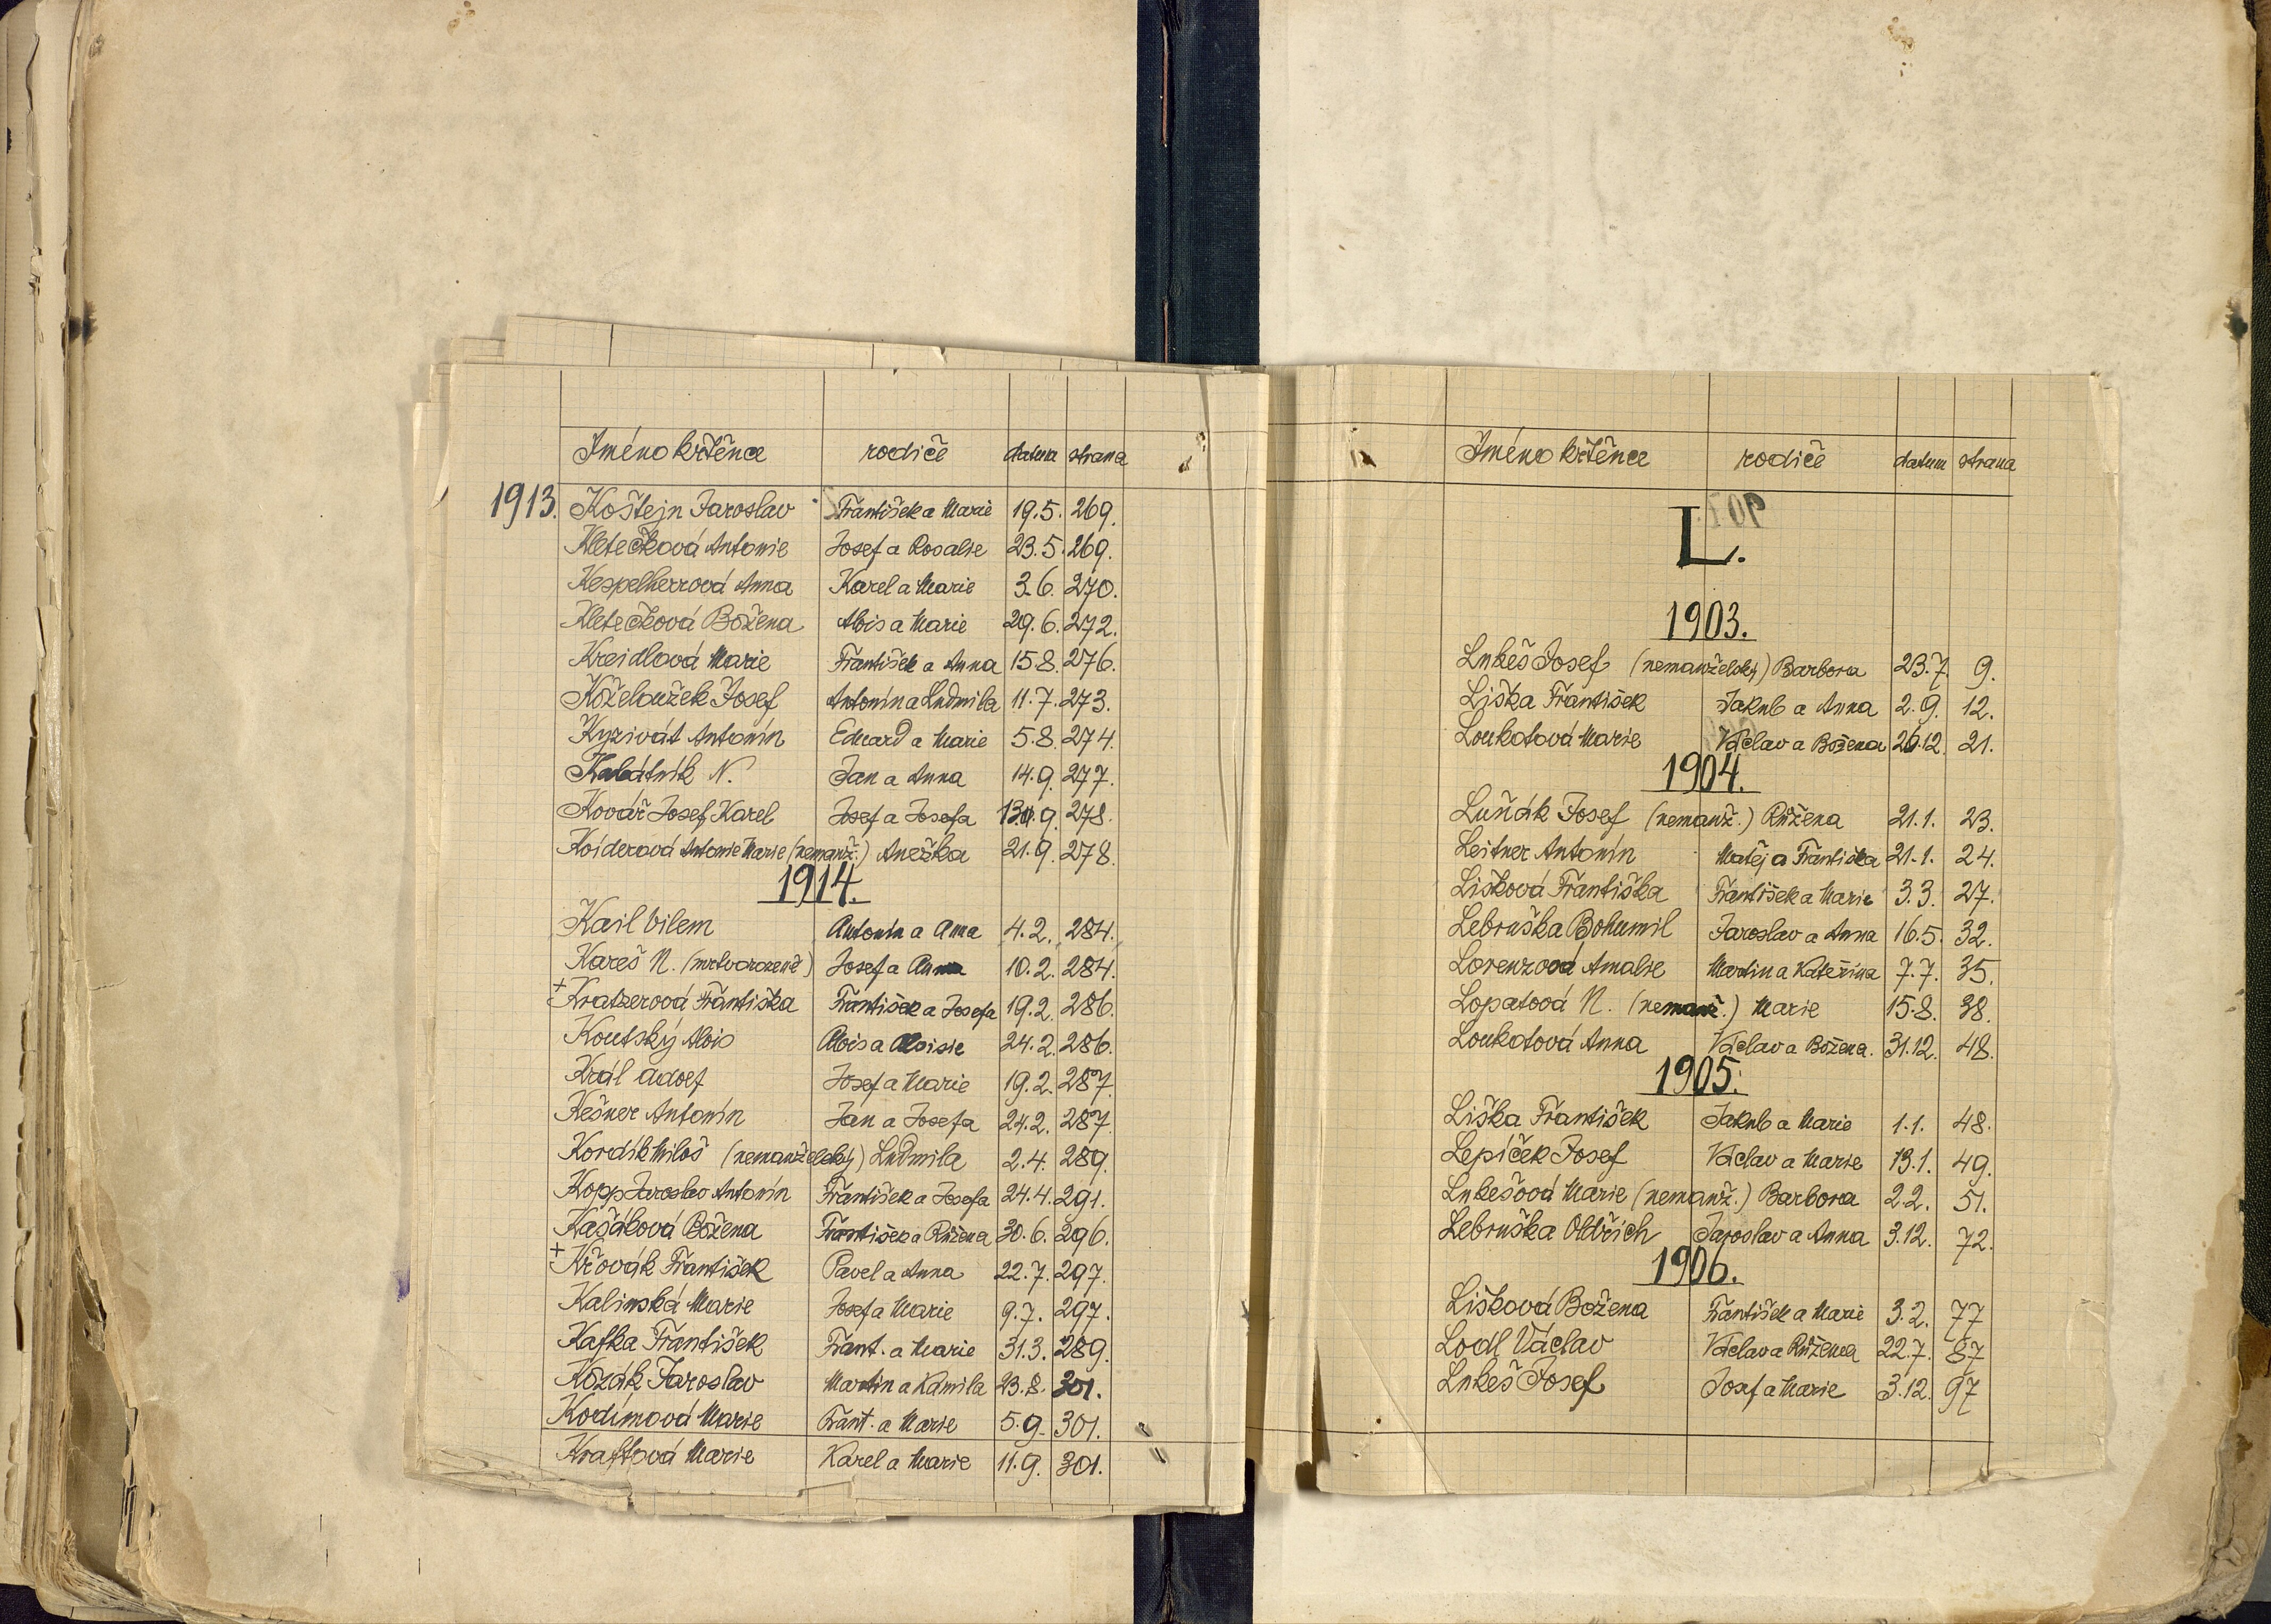 Jméno křtěnce rodiče datum strana
1913. Koštejn Jaroslav František a Marie 19.5. 269.
Kletečková Antonie Josef a Rosalie 23.5. 269.
Kespelherrová Anna Karel a Marie 3.6. 270.
Kletečková Božena Alois a Marie 29.6. 272.
Kreidlová Marie František a Anna 15.8. 276.
Koželoužek Josef Antonín a Ludmila 11.7. 273.
Kyzivát Antonín Eduard a Marie 5.8. 274.
Kabátník N. Jan a Anna 14.9. 277.
Kovář Josef Karel Josef a Josefa 9. 278.
Koiderová Antonie Marie (nemanž.) Anežka 21.9. 278.
1914.
Kail Vilem Antonín a Anna 4.2. 284.
Kareš N. (mrtvorozené) Josef a Anna 10.2. 284.
+ Kratzerová Františka František a Josefa 19.2. 286.
Koutský Alois Alois a Aloisie 24.2. 286.
Král Adolf Josef a Marie 19.2. 287.
Kešner Antonín Jan a Josefa 24.2. 287.
Kordík Miloš (nemanželský) Ludmila 2.4. 289.
Kopp Jaroslav Antonín František a Josefa 24.4. 291.
Kašáková Božena František a Růžena 30.6. 296.
+ Křovák František Pavel a Anna 22.7. 297.
Kalinská Marie Josef a Marie 9.7. 297.
Kafka František Frant. a Marie 31.3. 289.
Kozák Jaroslav Martin a Kamila 23.8. 301.
Kodímová Marie Frant. a Marie 5.9. 301.
Kraftová Marie Karel a Marie 11.9. 301.
Jméno křtěnce rodiče datum strana
L.
1903.
Lukeš Josef (nemanželský) Barbora 23.7. 9.
Liška František Jakub a Anna 2.9. 12.
Loukotová Marie Václav a Božena 26.12. 21.
1904.
Luňák Josef (nemanž.) Růžena 21.1. 23.
Leitner Antonín Matěj a Františka 21.1. 24.
Lišková Františka František a Marie 3.3. 27.
Lebruška Bohumil Jaroslav a Anna 16.5. 32.
Lorenzová Amalie Martin a Kateřina 7.7. 35.
Lopatová N. (nemanž.) Marie 15.8. 38.
Loukotová Anna Václav a Božena. 31.12. 48.
1905.
Liška František Jakub a Marie 1.1. 48.
Lepíček Josef Václav a Marie 13.1. 49.
Lukešová Marie (nemanž.) Barbora 2.2. 51.
Lebruška Oldřich Jaroslav a Anna 3.12. 72.
1906.
Lišková Božena František a Marie 3.2. 77
Lodl Václav Václav a Růžena 22.7. 87
Lukeš Josef Josef a Marie 3.12. 97